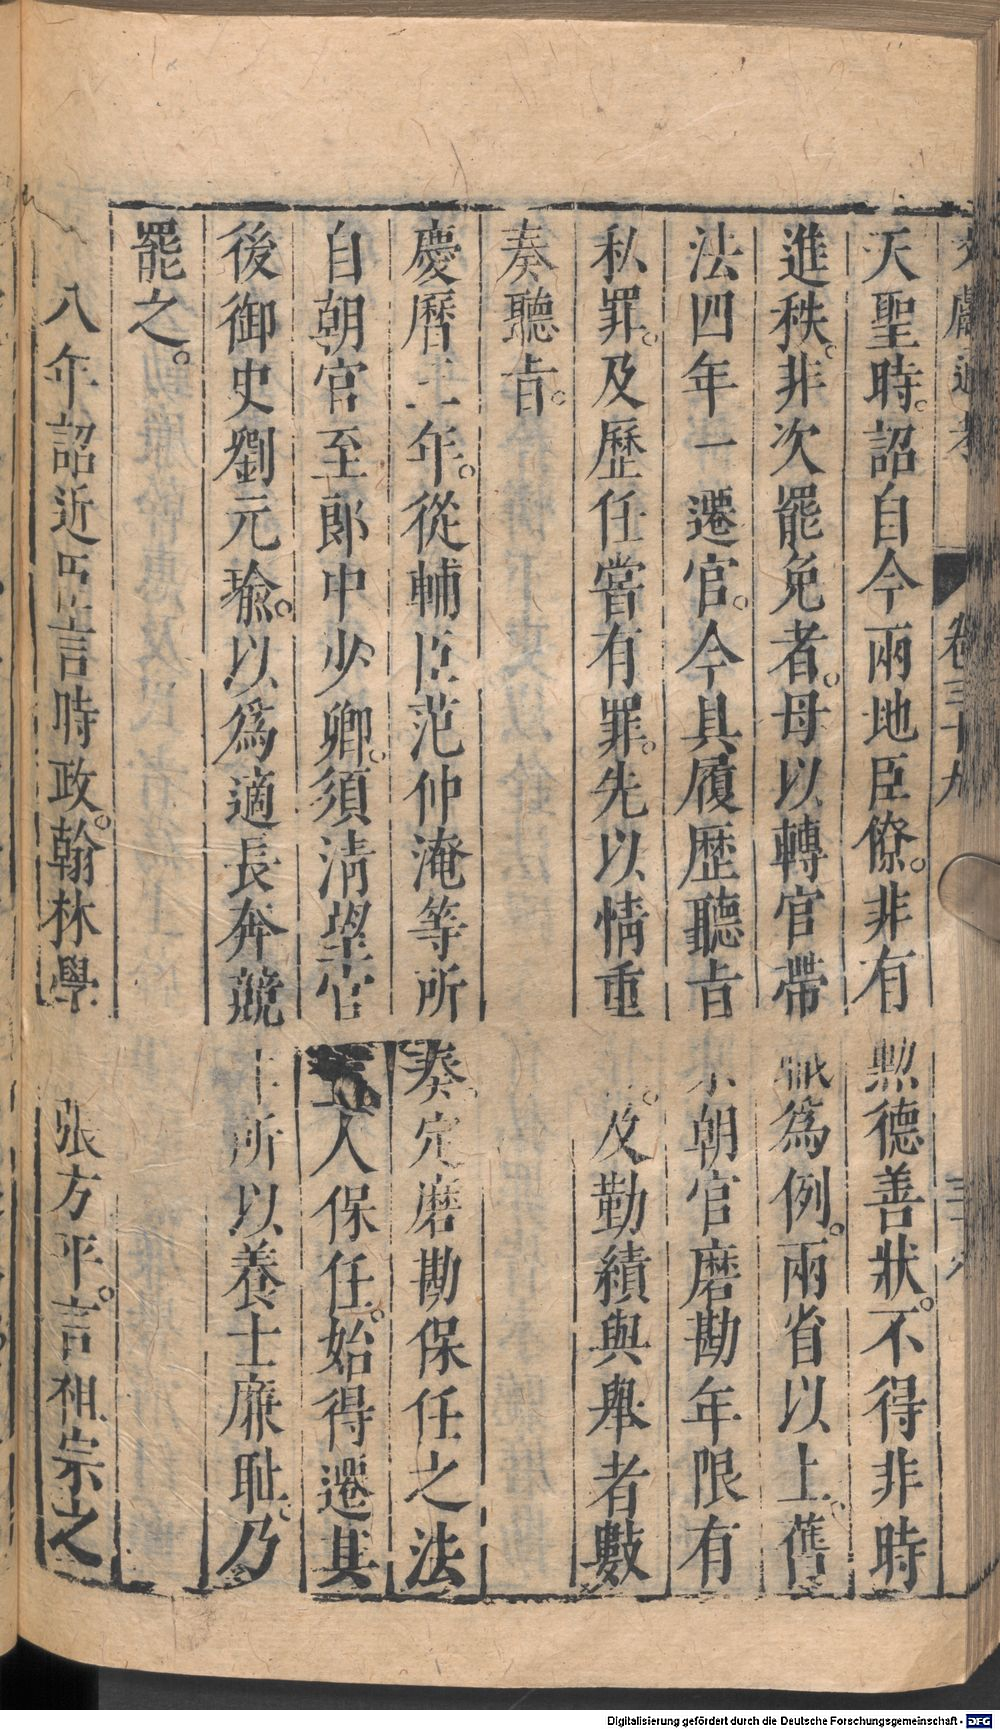 文獻通考 卷三十九
天聖時。詔自今兩地臣僚。非有勲德善狀。不得非時
進秩。非次罷免者。母以轉官帶職為例。兩省以上。舊
法四年一遷官。今具履歷聽旨朝官磨勘年限有
私罪。及歷任嘗有罪。先以情重及勤績與舉者數
奏聽旨。
慶曆 年。從輔臣范仲淹等所奏定磨勘保任之法
自朝官至郎中少卿。須清望官人保任。始得遷其
後御史劉元瑜。以為適長奔競所以養士廉恥。乃
罷之。
八年詔近臣言時政。翰林學張方平。言祖宗之
Digitalisierung gefördert durch die Deutsche Forschungsgemeinschaft - DFG